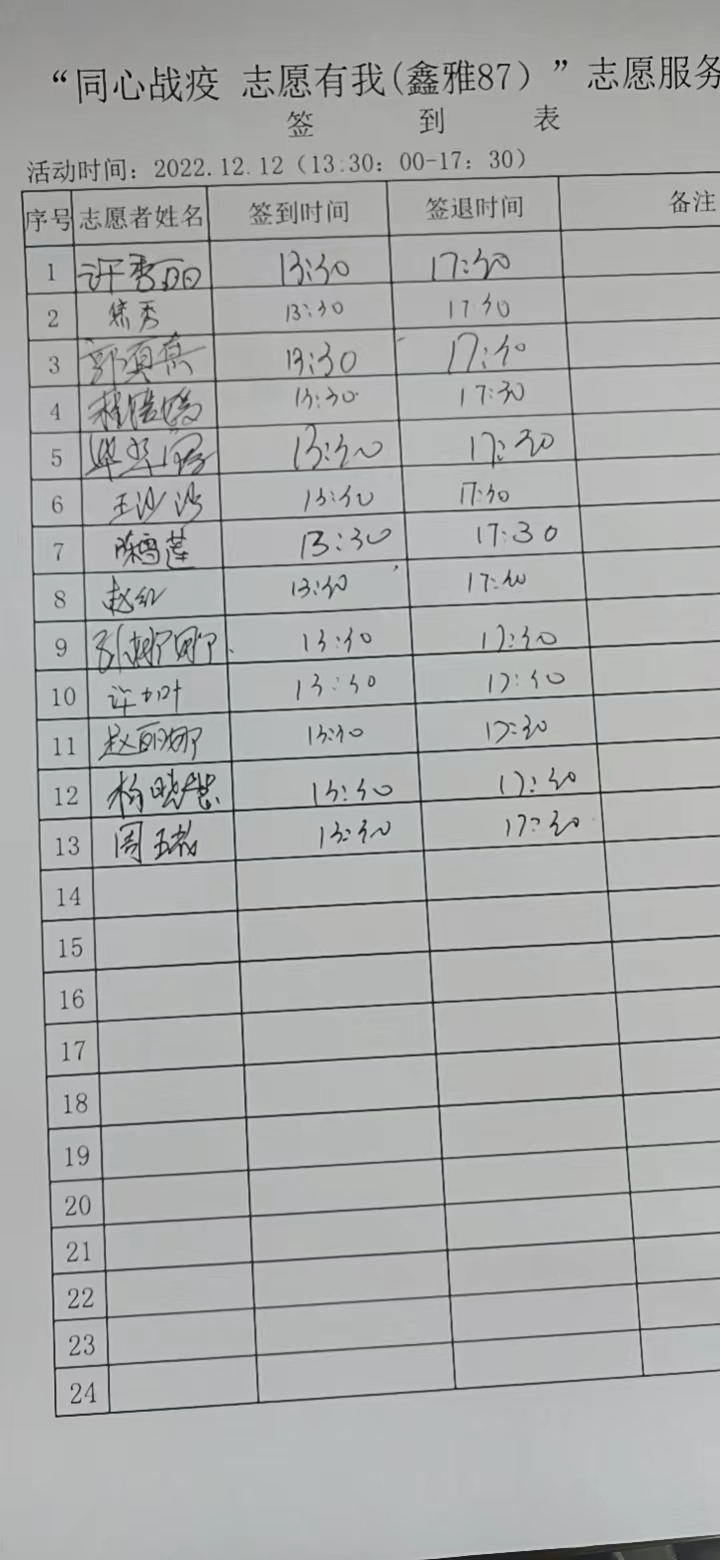 “同心战疫 志愿有我(鑫雅87）”志愿服务
签 到 表
活动时间：2022.12.12（13.30：00-17：30）
序号 志愿者姓名 签到时间 签退时间 备注
1 许秀丽 13:30 17:30
2 焦秀 13:30 17 30
3 郭真真 13:30 17:30
4 13:30 17:30
5 13:30 17:30
6 王沙沙 13:30 17:30
7 陈雪莲 13:30 17:30
8 赵红 13:30 17:30
9 13:30 17:30
10 许叶 13:30 17:30
11 赵丽娜 13:30 17:30
12 杨晓慧 13:30 17:30
13 周 13:30 17:30
14
15
16
17
18
19
20
21
22
23
24